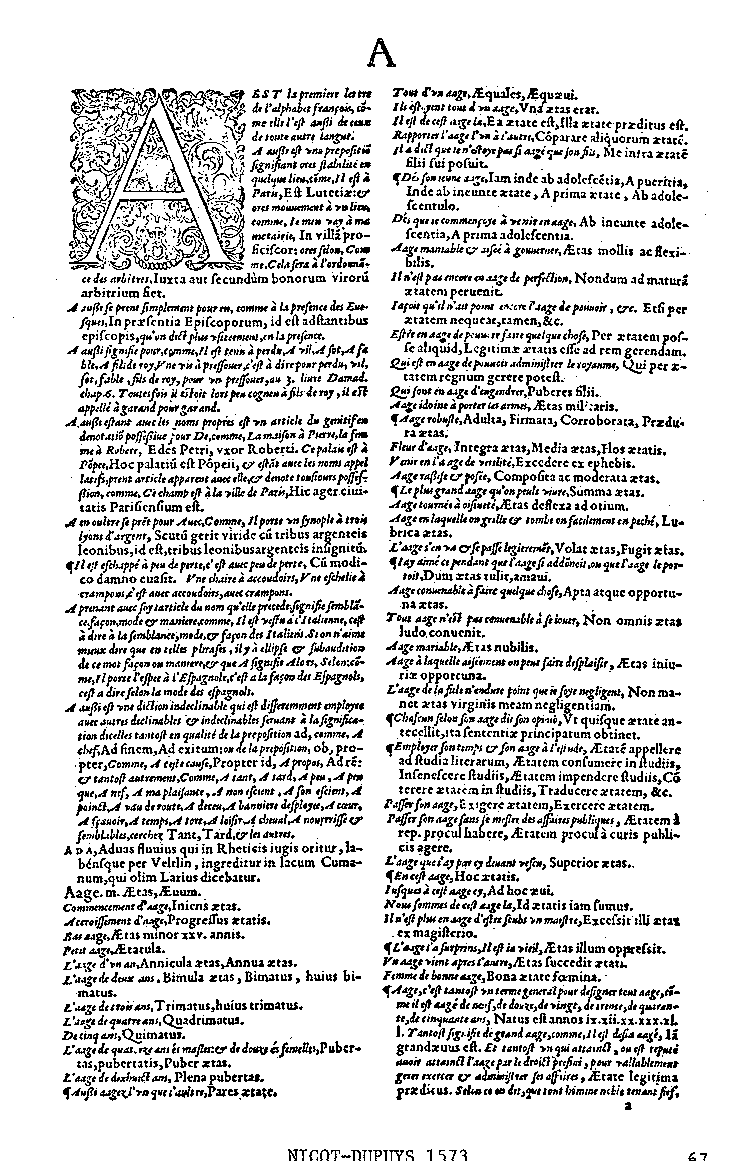 A
A EST la premiere lettre
de l'alphabet françois, cõ-
me elle l'est aussi de ceux
de toute autre langue.
A aussi est vne prepositiõ
signifiant ores stabilité en
quelque lieu, cõme, Il est à
Paris, Est Lutetiæ: &
ores mouuement à vn lieu,
comme, Ie m'en vay à ma
metairie, In villã pro-
ficiscor: ores selon, Com
me, Cela sera à l'ordonnã-
ce des arbitres, Iuxta aut secundùm bonorum virorũ
arbitrium fiet.
A aussi se prent simplement pour en, comme à la presence des Eues-
ques, In præsentia Episcoporum, id est adstantibus
episcopis, qu'on dict plus vsitement, en la presence.
A aussi signifie pour, comme, Il est tenu à perdu, A vil, A sot, A fa
ble, A fils de roy, Vne vis à pressouer, c'est à dire pour perdu, vil,
sot, fable, fils de roy, pour vn pressouer, au 3. liure Damad.
chap. 6. Toutesfois il estoit lors peu cogneu à fils de roy, il est
appellé à garand pour garand.
A, aussi estant auec les noms propres est vn article du genitif en
denotatiõ possessiue pour De, comme, La maison à Pierre, la fem
me à Robert, Edes Petri, vxor Roberti. Ce palais est à
Põpee, Hoc palatiũ est Põpeii, & estãt auec les noms appel
latifs, prent article apparent auec elle, & denote tousiours posses-
sion, comme, Ce champ est à la ville de Paris, Hic ager ciui-
tatis Parisiensium est.
A en outre se prẽt pour Auec, Comme, Il porte vn synople à trois
lyons d'argent, Scutũ gerit viride cũ tribus argenteis
leonibus, id est, tribus leonibus argenteis insignitũ.
¶ Il est eschappé à peu de perte, c'est auec peu de perte, Cũ modi-
co damno euasit. Vne chaire à accoudoirs, Vne eschelle à
crampons, c'est auec accoudoirs, auec crampons.
A prenant auec soy l'article du nom qu'elle precede, signifie semblã-
ce, façon, mode & maniere, comme, Il est vestu à l'Italienne, c'est
à dire à la semblance, mode, & façon des Italiens. Si on n'aime
mieux dire que en telles phrases, il y à ellipse & subaudition
de ce mot façon ou maniere, & que A signifie Alors, Selon: cõ-
me, Il porte l'espee à l'Espagnole, c'est à la façon des Espagnols,
c'est a dire selon la mode des espagnols.
A aussi est vne diction indeclinable qui est differemment employee
auec autres declinables & indeclinables seruant à la significa-
tion dicelles tantost en qualité de la preposition ad, comme, A
chef, Ad finem, Ad exitum: ou de la preposition, ob, pro-
pter, Comme, A ceste cause, Propter id, A propos, Ad rẽ:
& tantost autrement, Comme, A tant, A tard, A peu, A peu
que, A nef, A ma plaisance, A non escient, A son escient, A
poinct, A vau de route, A deceu, A banniere desployee, A cœur,
A sçauoir, A temps, A tort, A loisir, A cheual, A nourrisse &
semblables, cerchez Tant, Tard, & les autres.
ADA, Aduas fluuius qui in Rhetiæis iugis oritur, la-
bénsque per Veltlin, ingreditur in lacum Cuma-
num, qui olim Larius dicebatur.
Aage. m. Ætas, Æuum.
Commencement d'aage, Iniens ætas.
Accroissement d'aage, Progressus ætatis.
Bas aage, Ætas minor xxv. annis.
Petit aage, Ætatula.
L'aage d'vn an, Annicula ætas, Annua ætas.
L'aage de deux ans, Bimula ætas, Bimatus, huius bi-
matus.
L'aage de trois ans, Trimatus, huius trimatus.
L'aage de quatre ans, Quadrimatus.
De cinq ans, Quimatus.
L'aage de quatorze ans és masles: & de douze és femelles, Puber-
tas, pubertatis, Puber ætas.
L'aage de dixhuict ans, Plena pubertas.
¶ Aussi aagez l'vn que l'autre, Pares ætate.
Tout d'vn aage, Æquales, Æquæui.
Ils estoyent tous d'vn aage, Vna ætas erat.
Il est de cest aage la, Ea ætate est, Illa ætate præditus est.
Rapporter l'aage l'vn à l'autre, Cõparare aliquorum ætatẽ.
Il a dict que ie n'estoye pas si aagé que son fils, Me infra ætatẽ
filii sui posuit.
¶ Dés son ieune aage, Iam inde ab adolescẽtia, A pueritia,
Inde ab ineunte ætate, A prima ætate, Ab adole-
scentulo.
Dés que ie commençoye à venir en aage, Ab ineunte adole-
scentia, A prima adolescentia.
Aage maniable & aisee à gouuerner, Ætas mollis ac flexi-
bilis.
Il n'est pas encore en aage de perfection, Nondum ad maturã
ætatem peruenit.
Iaçoit qu'il n'ait point encore l'aage de pouuoir, &c. Etsi per
ætatem nequeat, tamen, &c.
Estre en aage de pouuoir faire quelque chose, Per ætatem pos-
se aliquid, Legitimæ ætatis esse ad rem gerendam.
Qui est en aage de pouuoir administrer le royaume, Qui per æ-
tatem regnum gerere potest.
Qui sont en aage d'engendrer, Puberes filii.
Aage idoine à porter les armes, Ætas militaris.
¶ Aage robuste, Adulta, Firmata, Corroborata, Prædu-
ra ætas.
Fleur d'aage, Integra ætas, Media ætas, Flos ætatis.
Venir en l'aage de virilité, Excedere ex ephebis.
Aage rassise & posee, Composita ac moderata ætas.
¶ Le plus grand aage qu'on peult viure, Summa ætas.
Aage tournee à oisiueté, Ætas deflexa ad otium.
Aage en laquelle on grille & tombe on facilement en peché, Lu-
brica ætas.
L'aage s'en va & se passe legierement, Volat ætas, Fugit ætas.
¶ I'ay aimé ce pendant que l'aage si addõnoit, ou que l'aage le por-
toit, Dum ætas tulit, amaui.
Aage conuenable à faire quelque chose, Apta atque opportu-
na ætas.
Tous aage n'est pas conuenable à se iouer, Non omnis ætas
ludo conuenit.
Aage mariable, Ætas nubilis.
Aage à laquelle aiseement on peut faire desplaisir, Ætas iniu-
riæ opportuna.
L'aage de la fille n'endure point que ie soye negligent, Non ma-
net ætas virginis meam negligentiam.
¶ Chascun selon son aage dit son opiniõ, Vt quisque ætate an-
tecellit, ita sententiæ principatum obtinet.
¶ Employer son temps & son aage à l'estude, Ætatẽ appellere
ad studia literarum, Ætatem consumere in studiis,
Insenescere studiis, Ætatem impendere studiis, Cõ
terere ætatem in studiis, Traducere ætatem, &c.
Passer son aage, Exigere ætatem, Exercere ætatem.
Passer son aage sans se mesler des affaires publiques, Ætatem à
rep. procul habere, Ætatem procul à curis publi-
cis agere.
L'aage que i'ay par cy deuant vescu, Superior ætas.
¶ En cest aage, Hoc ætatis.
Iusques à cest aage cy, Ad hoc æui.
Nous sommes de cest aage la, Id ætatis iam sumus.
Il n'est plus en aage d'estre soubs vn maistre, Excessit illi ætas
ex magisterio.
¶ L'aage l'a surprins, Il est ia vieil, Ætas illum oppressit.
Vn aage vient apres l'autre, Ætas succedit ætati.
Femme de bonne aage, Bona ætate fœmina.
¶ Aage, c'est tantost vn terme general pour designer tout aage, cõ-
me il est aagé de neuf, de douze, de vingt, de trente, de quaran-
te, de cinquante ans, Natus est annos ix. xii. xx. xxx. xl.
l. Tantost signifie de grand aage, comme, Il est desia aagé, Iã
grandæuus est. Et tantost vn qui attainct, ou est reputé
auoir attainct l'aage par le droict prefini, pour vallablement
gerer exercer & administrer ses affaires, Ætate legitima
præditus. Selon ce on dit, que tout homme noble tenant fief,
a
NICOT-DUPUYS 1573
67